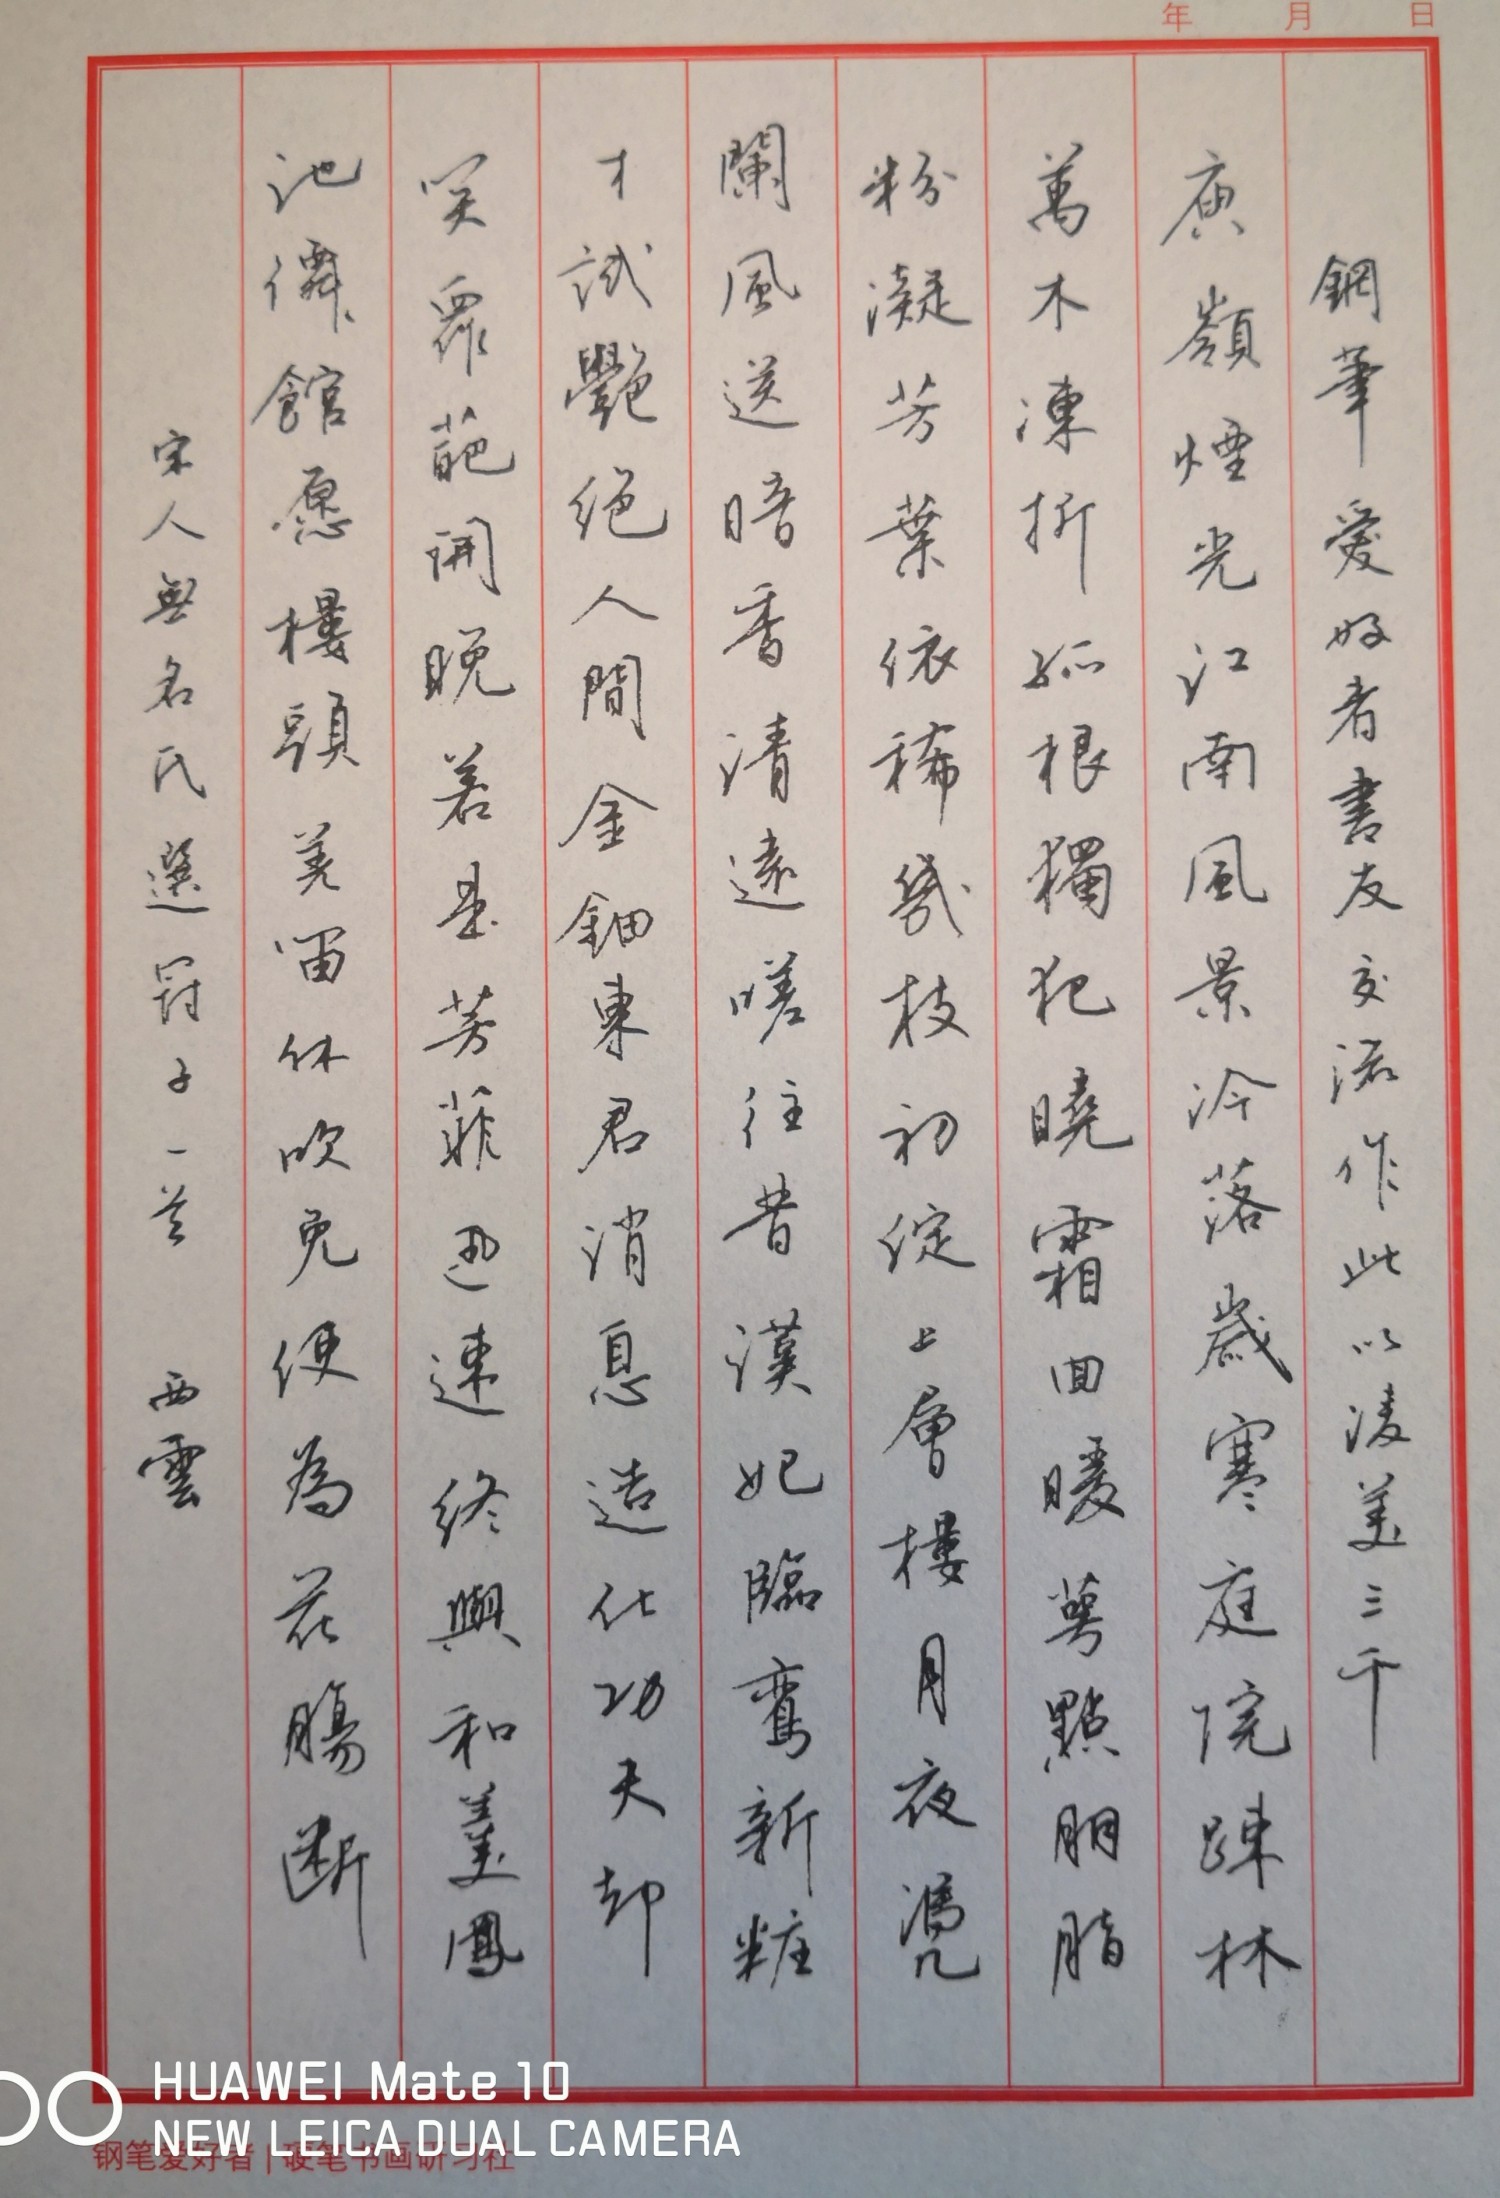 年 月 日
鋼筆愛好者書友交流作此以淩美三千
庾嶺煙光江南風景泠落歲寒庭院踈林
萬木凍折孤根獨犯曉霜回暖萼點胭脂
粉凝芳葉依稀幾枝初綻上層樓月夜凴
闌風送暗香清遠嗟往昔漢妃臨鸞新粧
才試艷絕人間金鈿東君消息造化功夫却
笑眾葩開晚若是芳菲迅速終與和羹鳳
池儛館愿樓頭羌笛休吹免使為花腸断
宋人無名氏選冠子一首 西雲
HUAWEI Mate 10
NEW LEICA DUAL CAMERA
钢笔爱好者|硬笔书画研习社